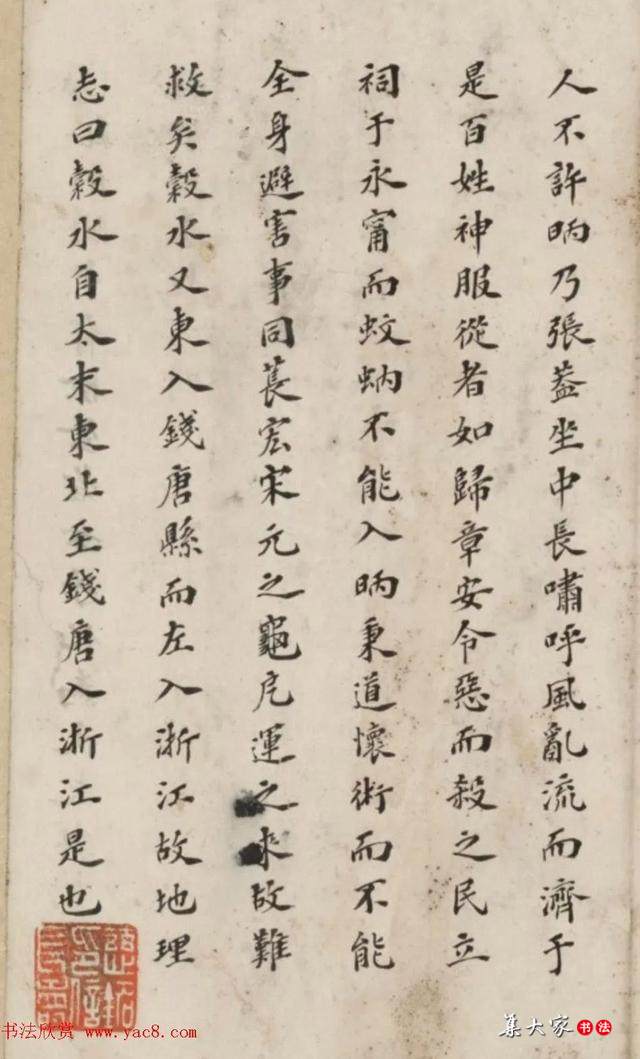 人不許昞乃張葢坐中長嘯呼風亂流而濟于
是百姓神服從者如歸章安令惡而殺之民立
祠于永甯而蚊蚋不能入昞秉道懷術而不能
全身避害事同萇宏宋元之龜厄運之来故難
救矣榖水又東入錢唐縣而左入浙江故地理
志曰榖水自太末東北至錢唐入浙江是也
书法欣赏 www.yac8.com
集大家 书法